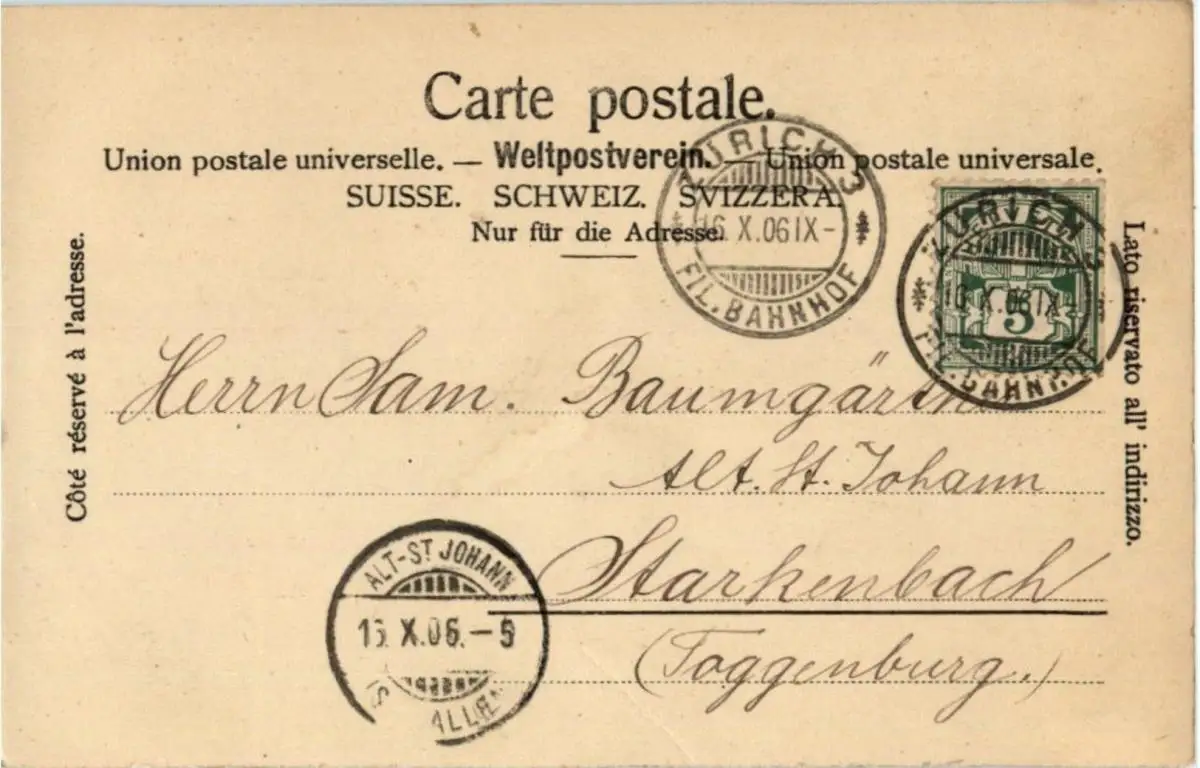 Carte postale.
Union postale universelle. — Weltpostverein. — Union postale universale.
SUISSE. SCHWEIZ. SVIZZERA.
Nur für die Adresse.
Côté réservé à l'adresse.
Lato riservato all' indirizzo.
ZÜRICH 3
16. X. 06 IX-
FIL. BAHNHOF
ZÜRICH 3
16. X. 06 IX-
FIL. BAHNHOF
5
Herrn Sam. Baumgärtner
Alt. St. Johann
Starkenbach
(Toggenburg.)
ALT-ST JOHANN
X.06.-5